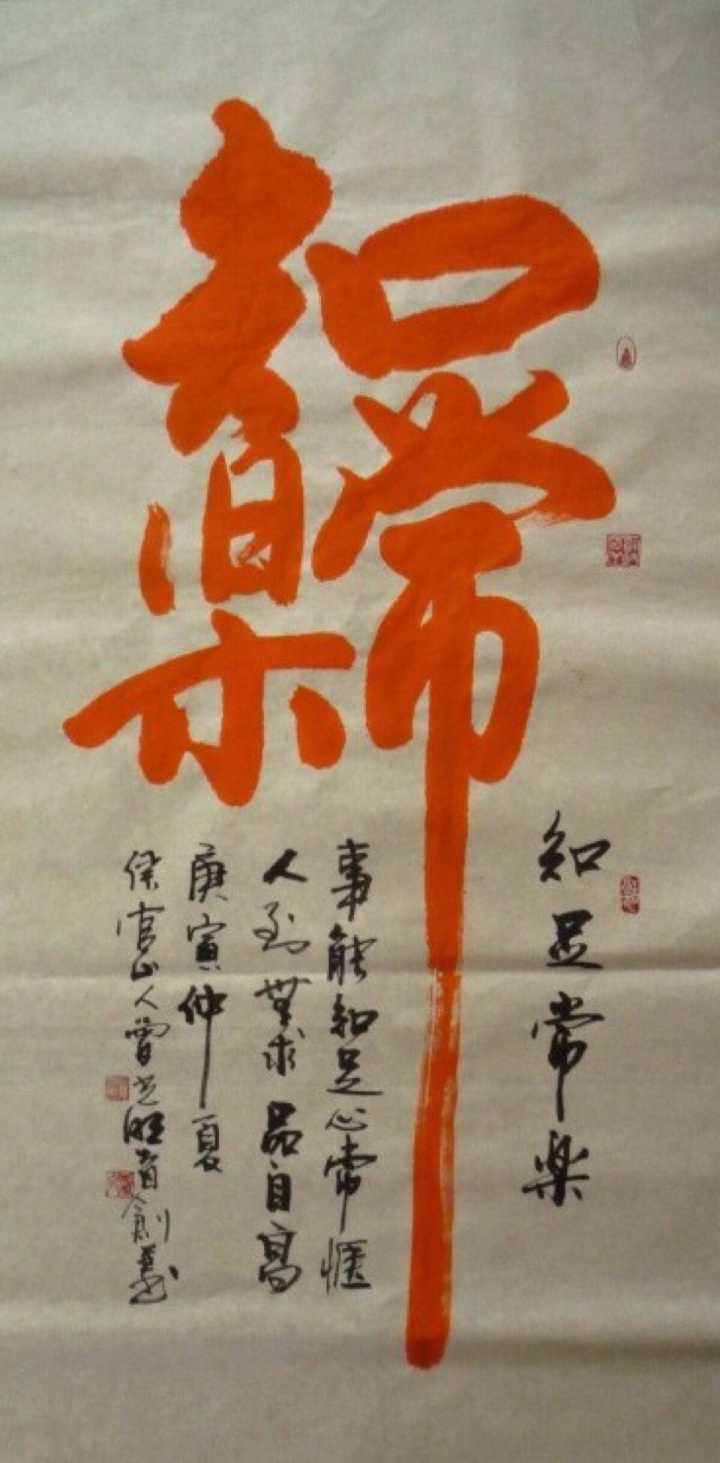 知足常樂
知足常楽
事能知足心常愜
人到無求品自高
庚寅仲夏
官山人曾旺首創